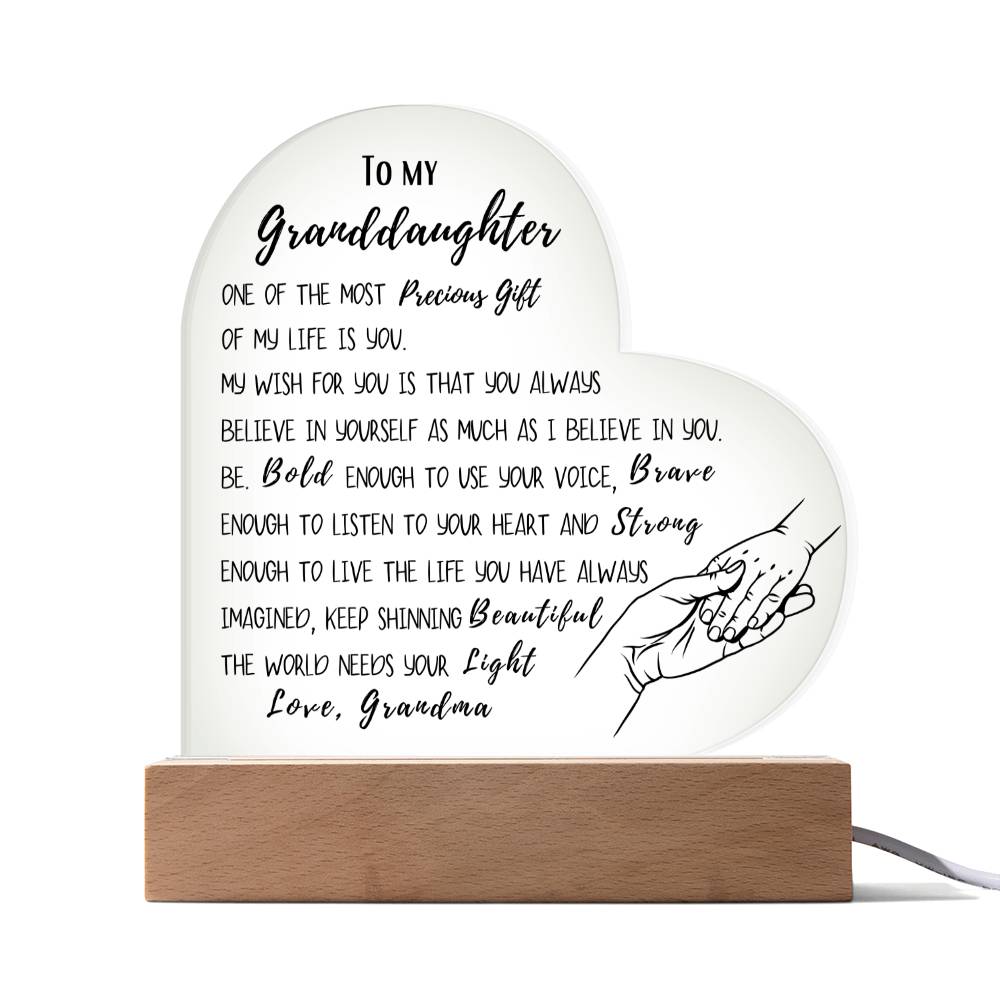 To my
Granddaughter
ONE OF THE MOST Precious Gift
OF MY LIFE IS YOU.
MY WISH FOR YOU IS THAT YOU ALWAYS
BELIEVE IN YOURSELF AS MUCH AS I BELIEVE IN YOU.
BE. Bold ENOUGH TO USE YOUR VOICE, Brave
ENOUGH TO LISTEN TO YOUR HEART AND Strong
ENOUGH TO LIVE THE LIFE YOU HAVE ALWAYS
IMAGINED, KEEP SHINNING Beautiful
THE WORLD NEEDS YOUR Light
Love, Grandma